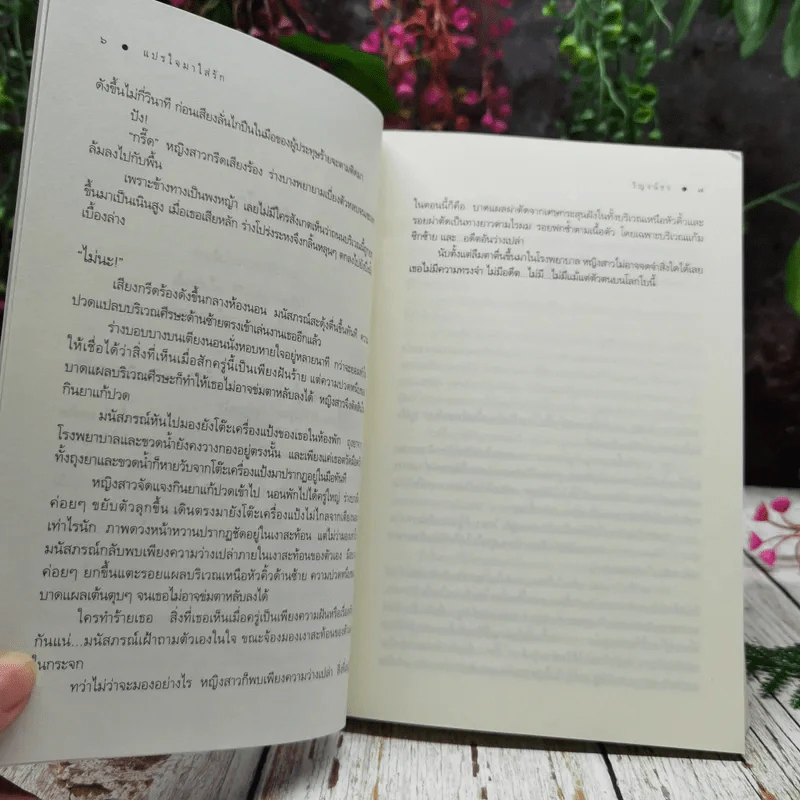 ๖ ● แปรใจมาใส่รัก
ดังขึ้นไม่กี่วินาที ก่อนเสียงลั่นไกปืนในมือของผู้ประทุษร้ายจะตามติดมา
ปัง!
“กรี๊ด” หญิงสาวกรีดเสียงร้อง ร่างบางพยายามเบี่ยงตัวหลบจน
ล้มลงไปกับพื้น
เพราะข้างทางเป็นพงหญ้า เลยไม่มีใครสังเกตเห็นว่าถนนบริเวณนี้
ขึ้นมาเป็นเนินสูง เมื่อเธอเสียหลัก ร่างโปร่งระหงจึงกลิ้งหลุนๆ ตกลงไปยัง
เบื้องล่าง
“ไม่นะ!”
เสียงกรีดร้องดังขึ้นกลางห้องนอน มนัสภรณ์สะดุ้งตื่นขึ้นทันที ความ
ปวดแปลบบริเวณศีรษะด้านซ้ายตรงเข้าเล่นงานเธออีกแล้ว
ร่างบอบบางบนเตียงนอนนั่งหอบหายใจอยู่หลายนาที กว่าจะยอม
ให้เชื่อได้ว่าสิ่งที่เห็นเมื่อสักครู่นี้เป็นเพียงฝันร้าย แต่ความปวดหนึบ
บาดแผลบริเวณศีรษะก็ทำให้เธอไม่อาจข่มตาหลับลงได้ หญิงสาวจึงตัดสินใจ
กินยาแก้ปวด
มนัสภรณ์หันไปมองยังโต๊ะเครื่องแป้งของเธอในห้องพัก ถุงยาจาก
โรงพยาบาลและขวดน้ำยังคงวางกองอยู่ตรงนั้น และเพียงแค่เธอ
ทั้งถุงยาและขวดน้ำก็หายวับจากโต๊ะเครื่องแป้งมาปรากฏอยู่ในมือทันที
หญิงสาวจัดแจงกินยาแก้ปวดเข้าไป นอนพักไปได้ครู่ใหญ่ ร่าง
ค่อยๆ ขยับตัวลุกขึ้น เดินตรงมายังโต๊ะเครื่องแป้งไม่ไกลจากเตียง
เท่าไรนัก ภาพดวงหน้าหวานปรากฏชัดอยู่ในเงาสะท้อน แต่ไม่ว่ามอง
มนัสภรณ์กลับพบเพียงความว่างเปล่าภายในเงาสะท้อนของตัวเอง มือ
ค่อยๆ ยกขึ้นแตะรอยแผลบริเวณเหนือหัวคิ้วด้านซ้าย ความปวด
บาดแผลเต้นตุบๆ จนเธอไม่อาจข่มตาหลับลงได้
ใครทำร้ายเธอ สิ่งที่เธอเห็นเมื่อครู่เป็นเพียงความฝันหรือ
กันแน่...มนัสภรณ์เฝ้าถามตัวเองในใจ ขณะจ้องมองเงาสะท้อนของ
ในกระจก
ทว่าไม่ว่าจะมองอย่างไร หญิงสาวก็พบเพียงความว่างเปล่า
● ๗
ในตอนนี้ก็คือ บาดแผลผ่าตัดจากเศษกระสุนฝังในทั้งบริเวณเหนือหัวคิ้วและ
รอยผ่าตัดเป็นทางยาวตามไรผม รอยฟกช้ำตามเนื้อตัว โดยเฉพาะบริเวณแก้ม
ซีกซ้าย และ...อดีตอันว่างเปล่า
นับตั้งแต่ลืมตาตื่นขึ้นมาในโรงพยาบาล หญิงสาวไม่อาจจดจำสิ่งใดได้เลย
เธอไม่มีความทรงจำ ไม่มีอดีต...ไม่มี...ไม่มีแม้แต่ตัวตนบนโลกใบนี้